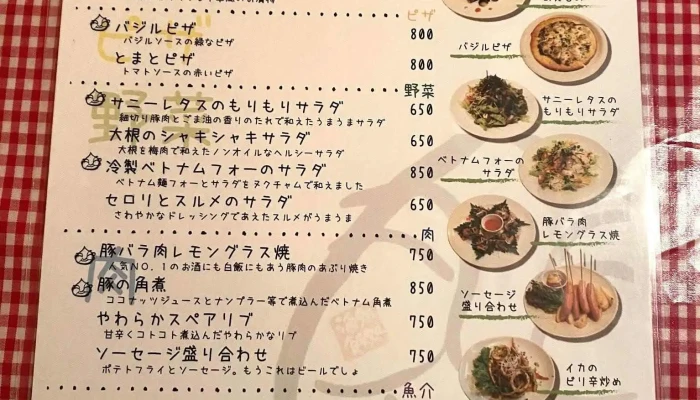 ピザ
バジルピザ 800
バジルソースの緑なピザ
とまとピザ 800
トマトソースの赤いピザ
野菜
サニーレタスのもりもりサラダ 650
細切り豚肉とごま油の香りのたれで和えたうまうまサラダ
大根のシャキシャキサラダ 650
大根を梅肉で和えたノンオイルなヘルシーサラダ
冷製ベトナムフォーのサラダ 850
ベトナム麺フォーとサラダをヌクチャムで和えました
セロリとスルメのサラダ 650
さわやかなドレッシングであえたスルメがうまうま
肉
豚バラ肉レモングラス焼 750
人気NO.1のお酒にも白飯にもあう豚肉のあぶり焼き
豚の角煮 850
ココナッツジュースとナンプラー等で煮込んだベトナム角煮
やわらかスペアリブ 750
甘辛くコトコト煮込んだやわらかなリブ
ソーセージ盛り合わせ 750
ポテトフライとソーセージ。もうこれはビールでしょ
魚介
バジルピザ
サニーレタスの
もりもりサラダ
ベトナムフォーの
サラダ
豚バラ肉
レモングラス焼
ソーセージ
盛り合わせ
イカの
ピリ辛炒め
ピザ
野菜
肉